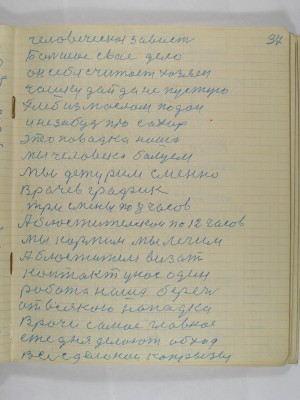 37
человеческая завист
Большое свае дело
он себя считает хозяен
чашку дай да не пустую
Хлеб измаслом подай
и незабудь про сахир
это повадка наша
мы человека балуем
мы детурим сменно
Врачев график
три смены по 8 часов
А блюстителской по 12 часов
мы кормим мы лечим
А блюстители визат
контакт унос один
робота наша береч
от всякою нападка
Врачи самое главное
еже дня делают обход